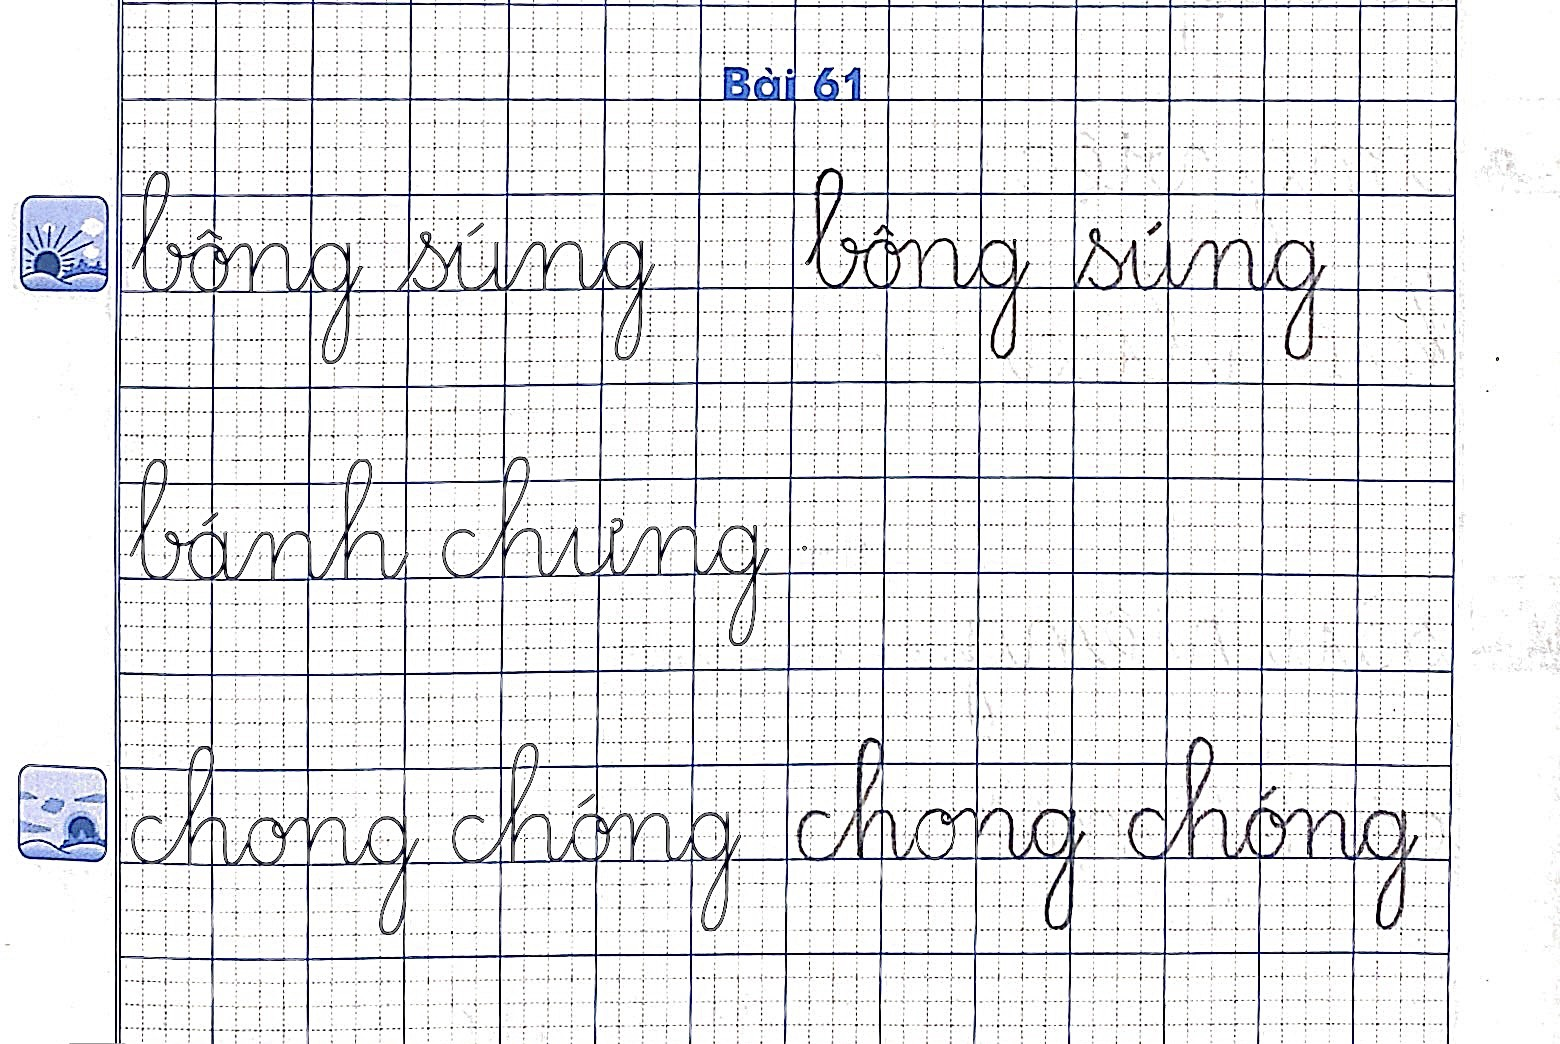 Bài 61
bông súng bông súng
bánh chưng
chong chóng chong chóng